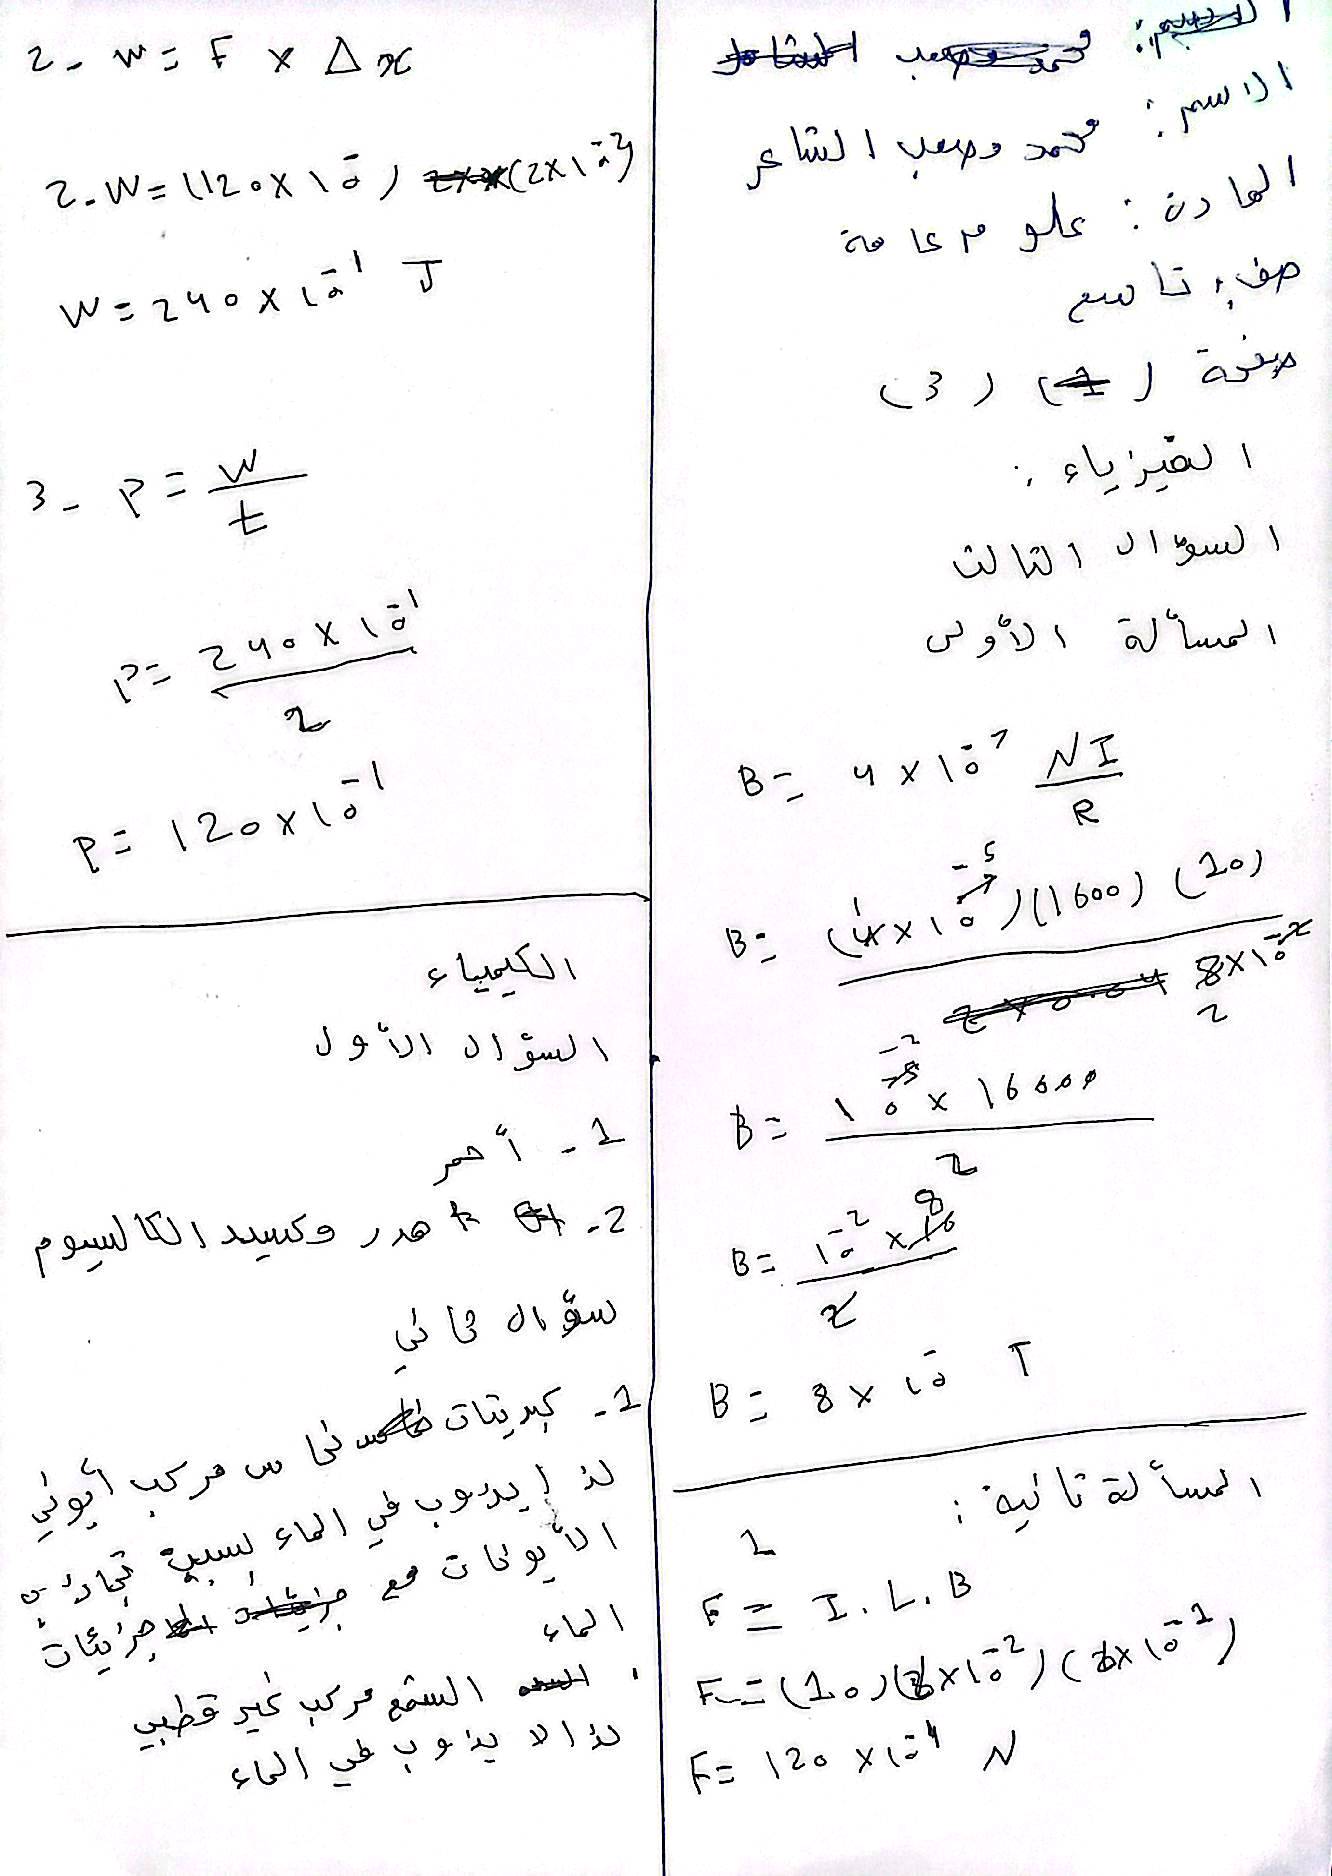 الاسم: محمد وصعب الشاعر
الاسم: محمد وصعب الشاعر
المادة: علوم عامة
صف: تاسع
صفحة (1) (3)
الفيزياء:
السؤال الثالث
المسألة الأولى
B= 4×10⁻⁷ NI/R
B= (4×10⁻⁵)(1600)(10) / 8×10⁻²
B= 10⁻² × 16000 / 2
B= 10⁻² × 16 / 2
B= 8×10⁻ T
المسألة ثانية:
1
F= I.L.B
F= (10)(6×10⁻²)(2×10⁻²)
F= 120×10⁻⁴ N
2- W= F × Δx
2-W= (120×10⁻) (2×10⁻²)
W= 240×10⁻¹ J
3- P= W/t
P= 240×10⁻¹ / 2
P= 120×10⁻¹
الكيمياء
السؤال الأول
1- أحمر
2- هدروكسيد الكالسيوم
سؤال ثاني
1- كبريتات نحاس مركب أيوني
لذا يذوب في الماء بسبب تجاذب
الأيونات مع جزيئات
الماء
. الشمع مركب غير قطبي
لذا لا يذوب في الماء